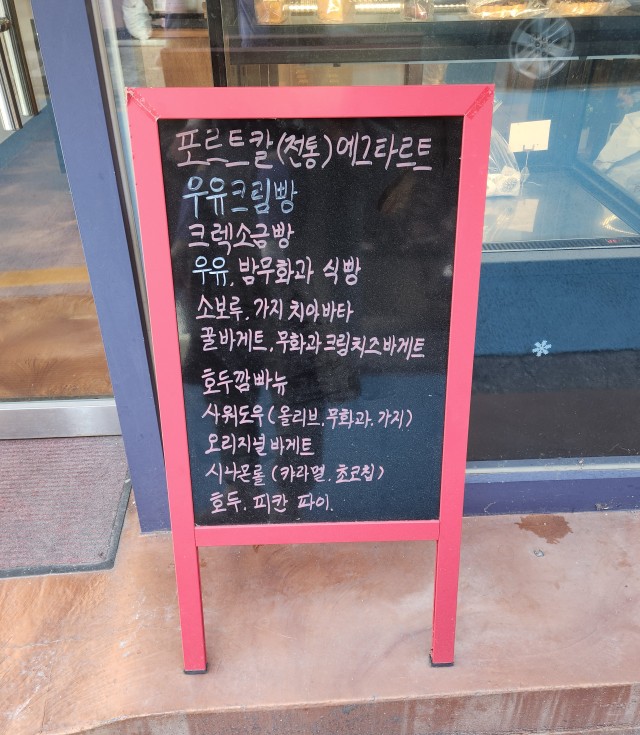 포르트칼(전통)에그타르트
우유크림빵
크렉소금빵
우유, 밤무화과 식빵
소보루, 가지 치아바타
꿀바게트, 무화과크림치즈바게트
호두깜빠뉴
사워도우(올리브, 무화과, 가지)
오리지널 바게트
시나몬롤 (캬라멜, 초코칩)
호두, 피칸 파이.